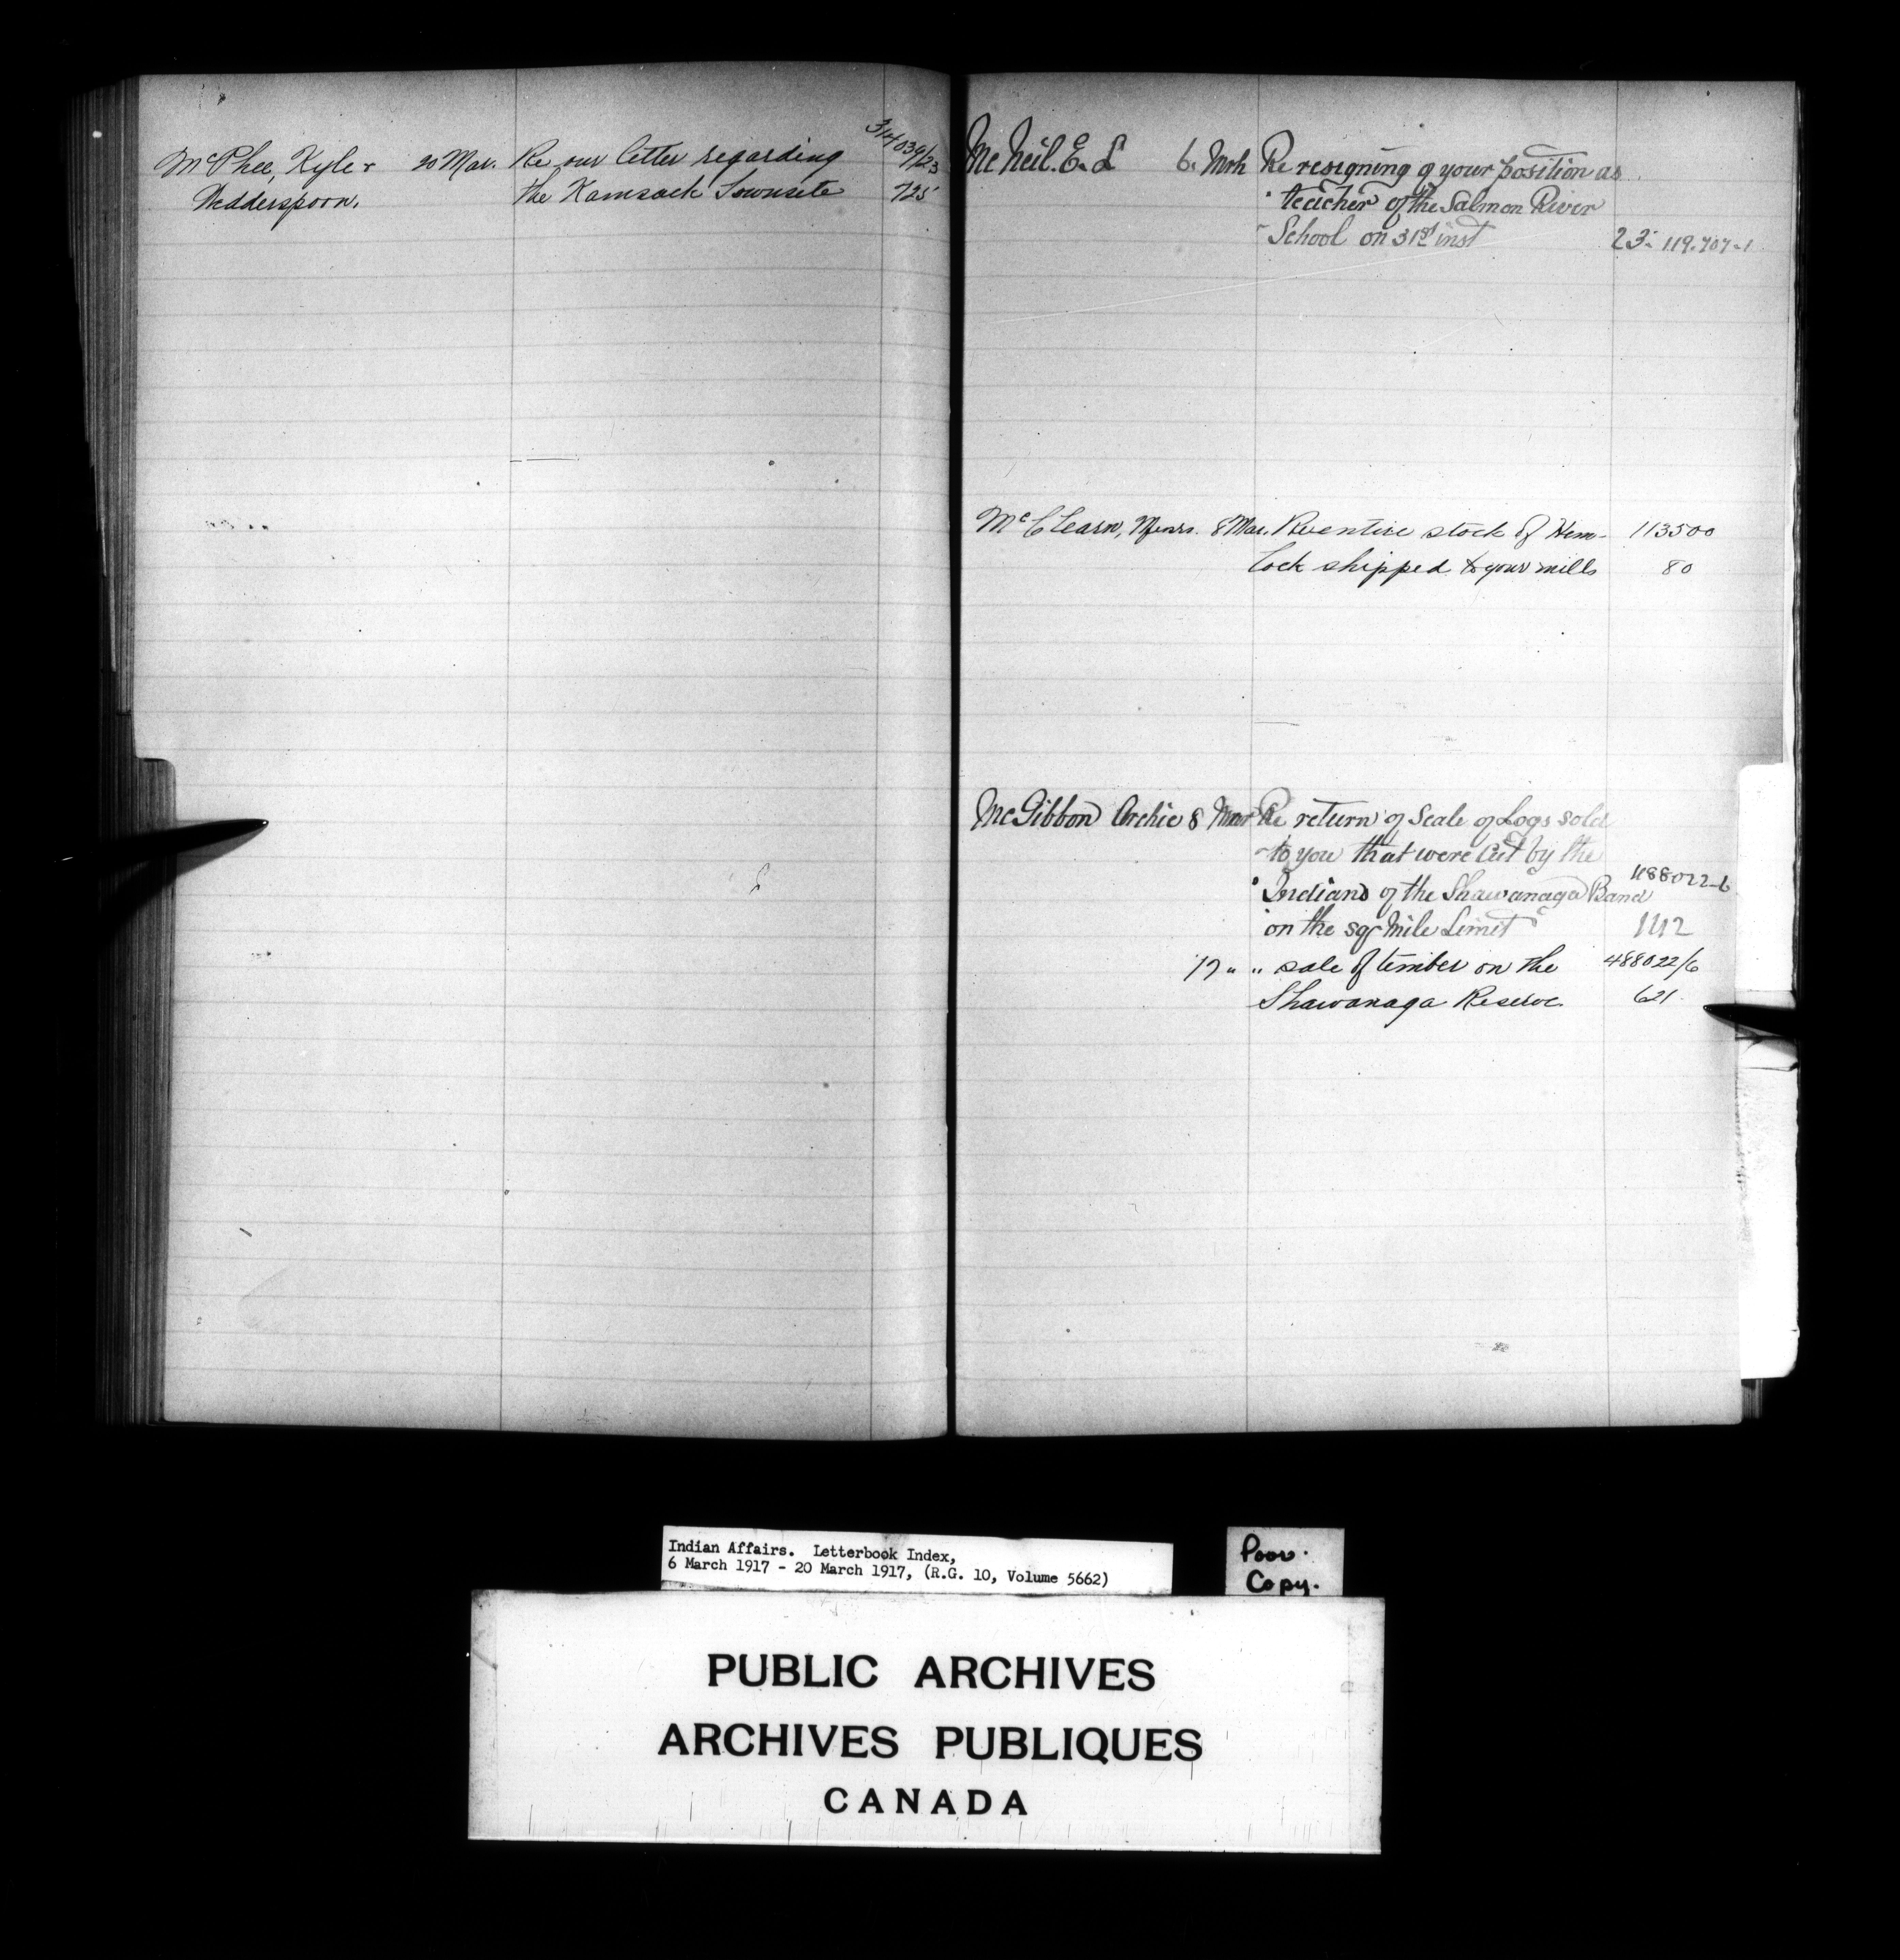 McPhee, Kyle & 20 Mar. Re our letter regarding 314039/23
Wedderspoon. the Kamsack Townsite 725
McNeil. E. L 6. Mrh Re resigning of your position as
teacher of the Salmon River
School on 31st inst 23. 119.707-1
McClearn, Messrs. 8 Mar. Re entire stock of Hem- 113500
lock shipped to your mills 80
McGibbon Archie 8 Mar Re return of Scale of Logs sold
to you that were Cut by the
Indians of the Shawanaga Band 488022-6
on the sqr Mile Limit 142
17 " " sale of timber on the 488022/6
Shawanaga Reserve. 621
Indian Affairs. Letterbook Index,
6 March 1917 - 20 March 1917, (R.G. 10, Volume 5662)
Poor.
Copy.
PUBLIC ARCHIVES
ARCHIVES PUBLIQUES
CANADA